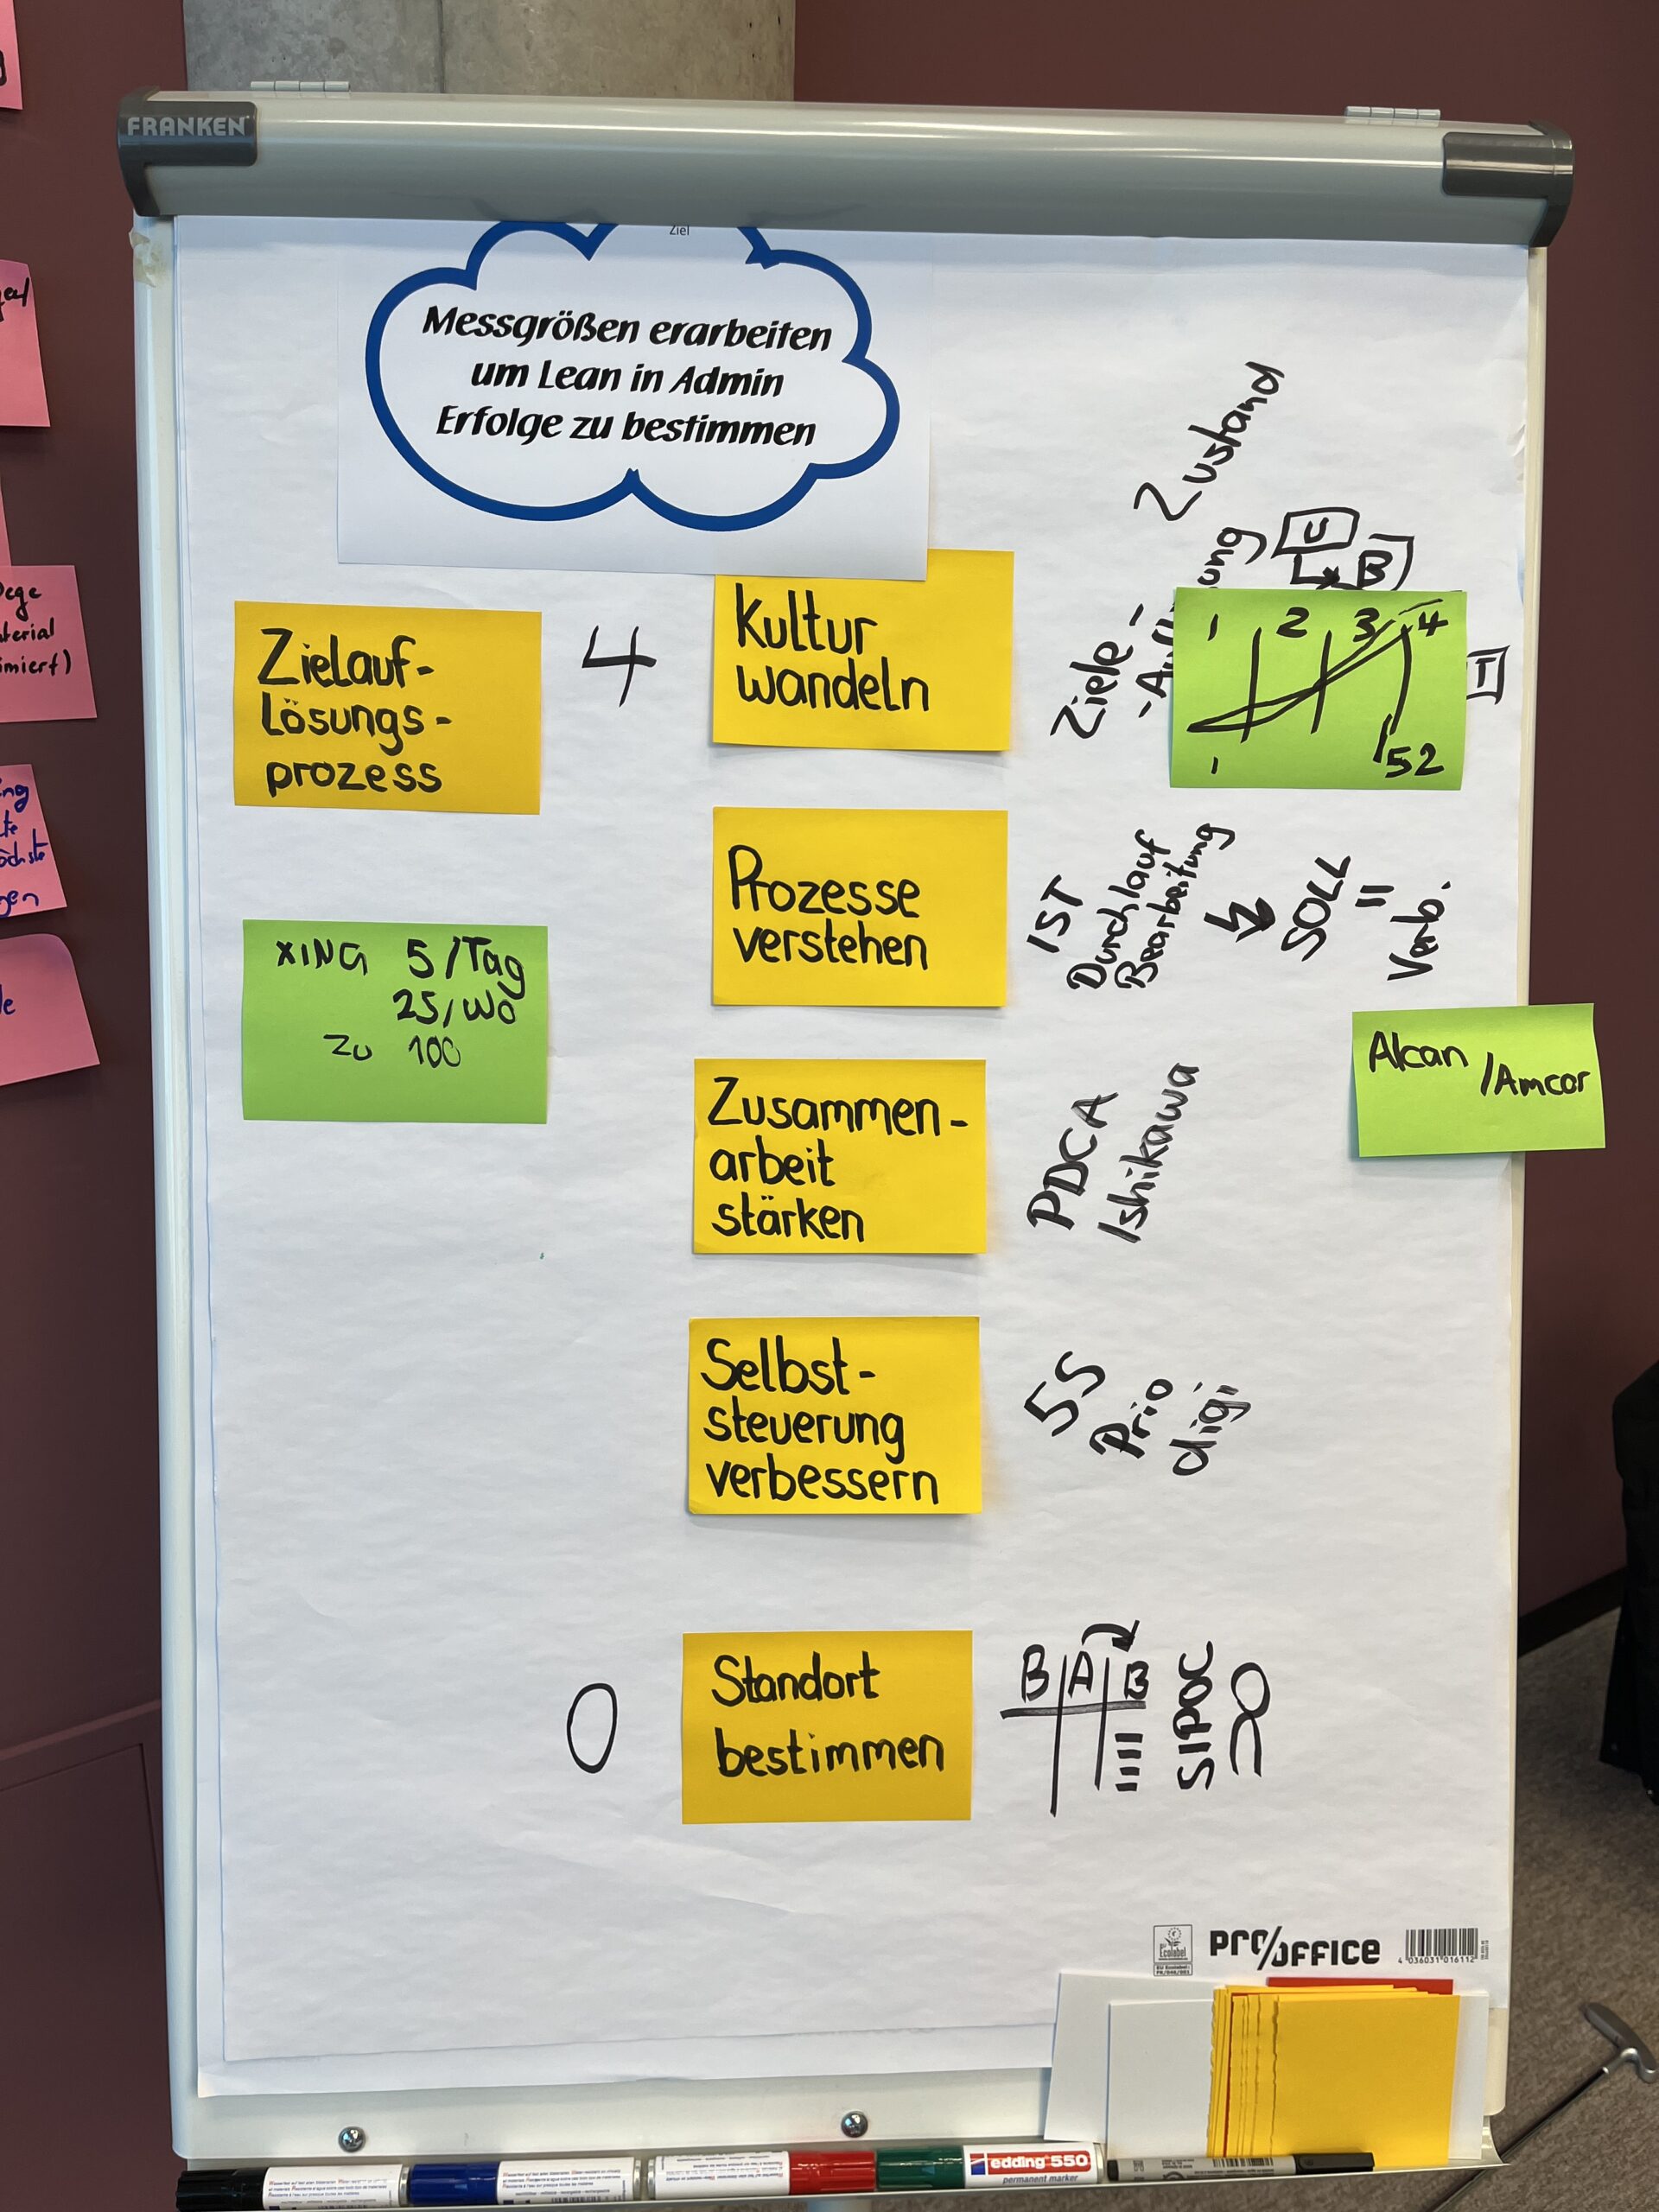 FRANKEN
Ziel
Messgrößen erarbeiten
um Lean in Admin
Erfolge zu bestimmen
Zielauf-
lösungs-
prozess
4
Kultur
wandeln
Ziele-
Zustand
U
B
I
1 2 3 4
52
Prozesse
verstehen
IST
Durchlauf
Bearbeitung
SOLL
=
Verb.
XING 5/Tag
25/Wo
zu 100
Alcan
/Amcor
Zusammen-
arbeit
stärken
PDCA
Ishikawa
Selbst-
steuerung
verbessern
5S
Prio
digi
0
Standort
bestimmen
B A B
SIPOC
Ecolabel
PRO/OFFICE
4 036031 016112
edding 550
permanent marker